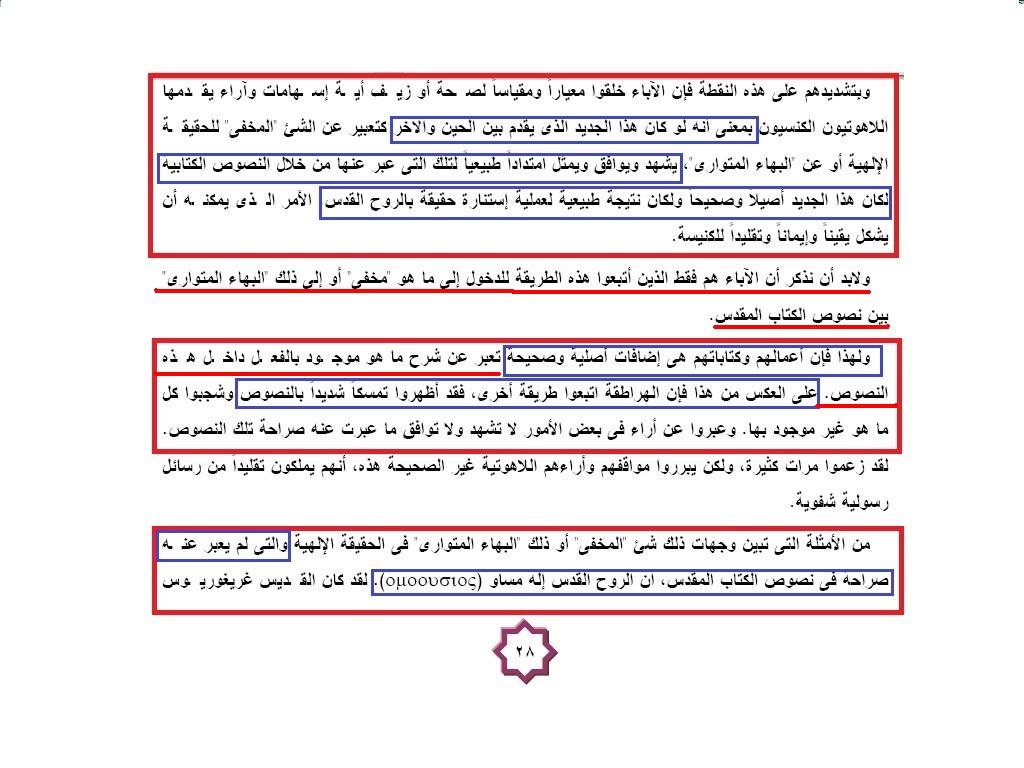 وبتشديدهم على هذه النقطة فإن الآباء خلقوا معياراً ومقياساً لصحة أو زيف أية إسهامات وآراء يقدمها
اللاهوتيون الكنسيون بمعنى أنه لو كان هذا الجديد الذى يقدم بين الحين والآخر كتعبير عن الشئ "المخفى" للحقيقة
الإلهية أو عن "البهاء المتوارى"، يشهد ويوافق ويمثل امتداداً طبيعياً لتلك التى عبر عنها من خلال النصوص الكتابية
لكان هذا الجديد أصيلاً وصحيحاً ولكان نتيجة طبيعية لعملية إستنارة حقيقة بالروح القدس. الأمر الذى يمكنه أن
يشكل يقيناً وإيماناً وتقليداً للكنيسة.
ولابد أن نذكر أن الآباء هم فقط الذين أتبعوا هذه الطريقة للدخول إلى ما هو "مخفى" أو إلى ذلك "البهاء المتوارى"
بين نصوص الكتاب المقدس.
ولهذا فإن أعمالهم وكتاباتهم هى إضافات أصلية وصحيحة تعبر عن شرح ما هو موجود بالفعل داخل هذه
النصوص. على العكس من هذا فإن الهراطقة اتبعوا طريقة أخرى، فقد أظهروا تمسكاً شديداً بالنصوص وشجبوا كل
ما هو غير موجود بها. وعبروا عن أراء فى بعض الأمور لا تشهد ولا توافق ما عبرت عنه صراحة تلك النصوص.
لقد زعموا مرات كثيرة، ولكن يبرروا مواقفهم وأراءهم اللاهوتية غير الصحيحة هذه، أنهم يملكون تقليداً من رسائل
رسولية شفوية.
من الأمثلة التى تبين وجهات ذلك شئ "المخفى" أو ذلك "البهاء المتوارى" فى الحقيقة الإلهية والتى لم يعبر عنه
صراحة فى نصوص الكتاب المقدس، ان الروح القدس إله مساو (ομοουσιος). لقد كان القديس غريغوريوس
٢٨